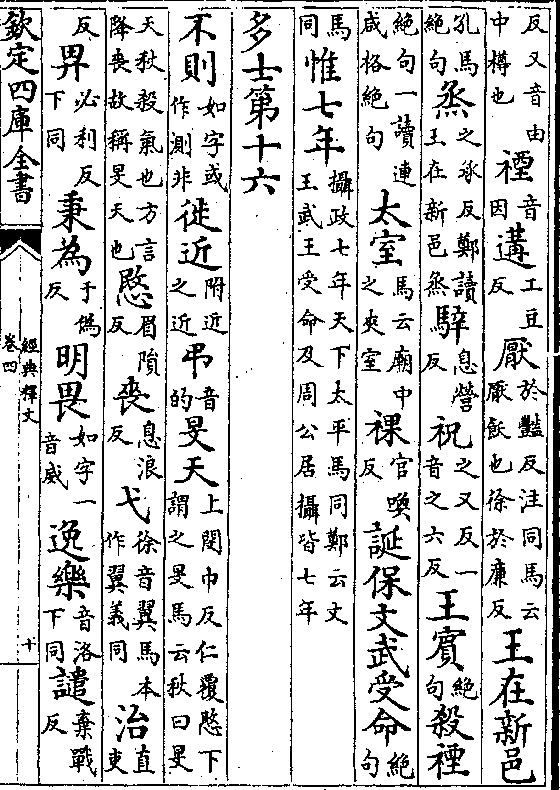 反又音由中樽也禋音因遘工豆反厭於豔反注同馬云厭飫也徐於廉反王在新邑
孔馬絕句烝之承反鄭讀王在新邑烝騂息營反祝之又反一音之六反王賓絕句殺禋
絕句一讀連咸格絕句太室馬云廟中之夾室祼官喚反誕保文武受命絕句
馬同惟七年攝政七年天下太平馬同鄭云文王武王受命及周公居攝皆七年
多士第十六
不則如字或作測非徙近附近之近弔音的旻天上閔巾反仁覆愍下謂之旻馬云秋曰旻
天秋殺氣也方言降喪故稱旻天也愍眉隕反喪息浪反弋徐音翼馬本作翼義同治直吏
反畀必利反下同秉為于偽反明畏如字一音威逸樂音洛下同譴棄戰反
欽定四庫全書
經典釋文
卷四
十